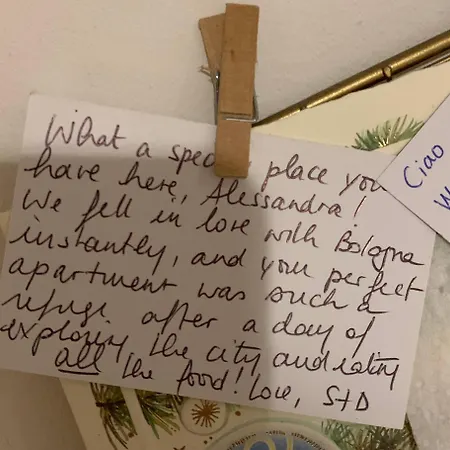 What a special place you
have here, Alessandra!
We fell in love with Bologna
instantly, and your perfect
apartment was such a
refuge after a day of
exploring the city and eating
all the food! Love, S+D
Ciao
W